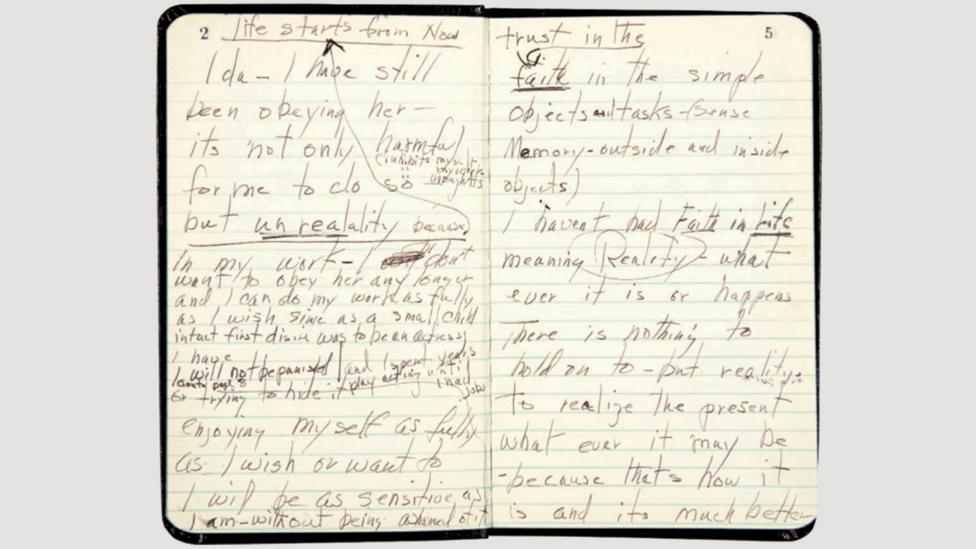 2
life starts from Now
Ida – I have still
been obeying her –
its not only harmful
(inhibits myself
my work
thoughts
for me to do so
but unreality because
In my work – I don't
want to obey her any longer
and I can do my work as fully
as I wish since as a small child
intact first desire was to be an actress)
I have
I will not be punished and I spent years
play acting until
I had
jobs
or trying to hide it
enjoying myself as fully
as I wish or want to
I will be as sensitive as
I am – without being ashamed of it
5
trust in the
faith in the simple
objects + tasks – (Sense
Memory – outside and inside
objects)
I havent had Faith in Life
meaning Reality – what
ever it is or happens
There is nothing to
hold on to – but reality.
to realize the present
what ever it may be
– because thats how it
is and its much better